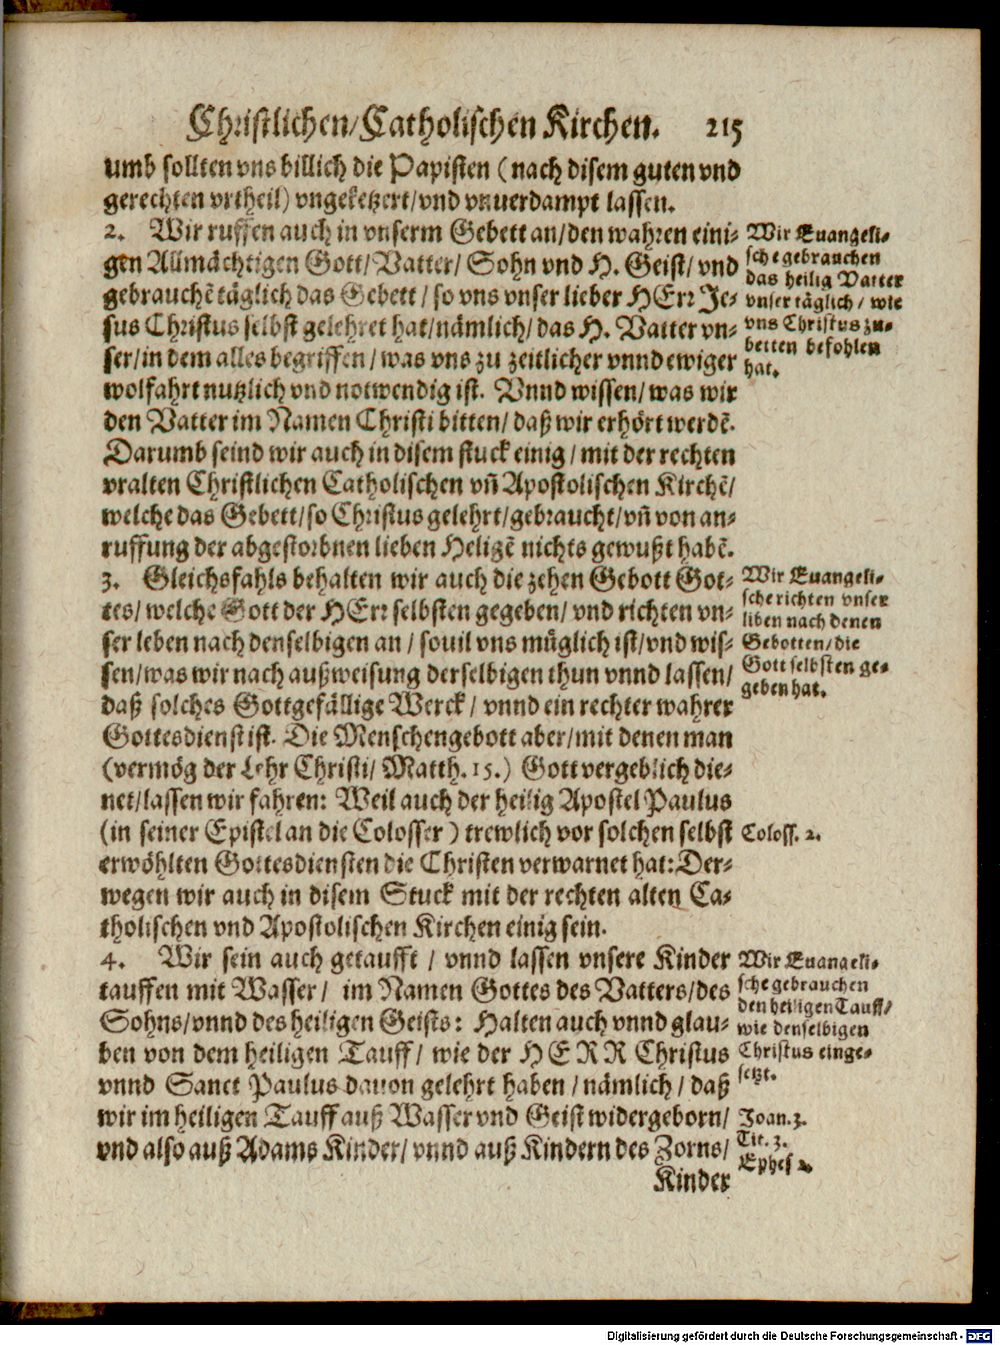 Christlichen/Catholischen Kirchen. 215
umb sollten vns billich die Papisten (nach disem guten vnd
gerechten vrtheil) vngeketzert/vnd vnuerdampt lassen.
2. Wir ruffen auch in vnserm Gebett an/den wahren eini-
gen Allmächtigen Gott/Vatter/Sohn vnd H. Geist/vnd
gebrauchẽ täglich das Gebett/so vns vnser lieber HErr Je-
sus Christus selbst gelehret hat/nämlich/das H. Vatter vn-
ser/in dem alles begriffen/was vns zu zeitlicher vnnd ewiger
wolfahrt nutzlich vnd notwendig ist. Vnnd wissen/was wir
den Vatter im Namen Christi bitten/daß wir erhört werdẽ.
Darumb seind wir auch in disem stuck einig/mit der rechten
vralten Christlichen Catholischen vñ Apostolischen Kirchẽ/
welche das Gebett/so Christus gelehrt/gebraucht/vñ von an-
ruffung der abgestorbnen lieben Heligẽ nichts gewußt habẽ.
Wir Euangeli-
sche gebrauchen
das heilig Vatter
vnser täglich/wie
vns Christus zu-
betten befohlen
hat.
3. Gleichsfahls behalten wir auch die zehen Gebott Got-
tes/welche Gott der HErr selbsten gegeben/vnd richten vn-
ser leben nach denselbigen an/souil vns müglich ist/vnd wis-
sen/was wir nach außweisung derselbigen thun vnnd lassen/
daß solches Gottgefällige Werck/vnnd ein rechter wahrer
Gottesdienst ist. Die Menschengebott aber/mit denen man
(vermög der Lehr Christi/Matth.15.) Gott vergeblich die-
net/lassen wir fahren: Weil auch der heilig Apostel Paulus
(in seiner Epistel an die Colosser) trewlich vor solchen selbst
erwöhlten Gottesdiensten die Christen verwarnet hat:Der-
wegen wir auch in disem Stuck mit der rechten alten Ca-
tholischen vnd Apostolischen Kirchen einig sein.
Wir Euangeli-
sche richten vnser
liben nach denen
Gebotten/die
Gott selbsten ge-
geben hat.
Coloss. 2.
4. Wir sein auch getaufft/vnnd lassen vnsere Kinder
tauffen mit Wasser/im Namen Gottes des Vatters/des
Sohns/vnnd des heiligen Geists: Halten auch vnnd glau-
ben von dem heiligen Tauff/wie der HERR Christus
vnnd Sanct Paulus dauon gelehrt haben/nämlich/daß
wir im heiligen Tauff auß Wasser vnd Geist widergeborn/
vnd also auß Adams Kinder/vnnd auß Kindern des Zorns/
Kinder
Wir Euangeli-
sche gebrauchen
den heiligen Tauff/
wie denselbigen
Christus einge-
setzt.
Joan.3.
Tit. 3.
Ephes 2.
Digitalisierung gefördert durch die Deutsche Forschungsgemeinschaft - DFG